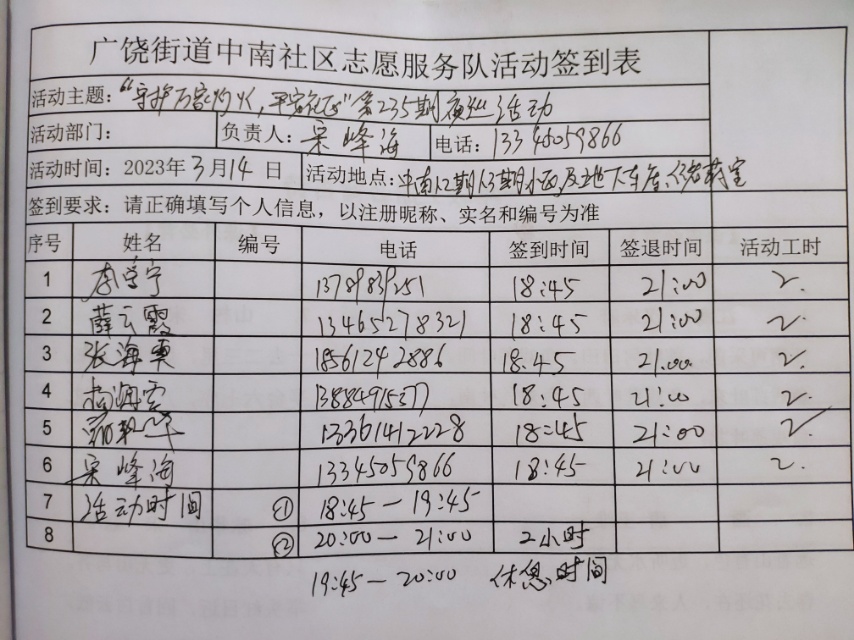 广饶街道中南社区志愿服务队活动签到表
活动主题："守护万家灯火,平安社区"第235期夜巡活动
活动部门： 负责人：宋峰海 电话：13345059866
活动时间：2023年3月14日 活动地点：中南12期13期小区及地下车库
签到要求：请正确填写个人信息，以注册昵称、实名和编号为准
序号 姓名 编号 电话 签到时间 签退时间 活动工时
1 李学宁 18:45 21:00 2.
2 薛云霞 13465278321 18:45 21:00 2.
3 张海東 18561242886 18:45 21:00 2.
4 13884915377 18:45 21:00 2.
5 13361412228 18:45 21:00 2
6 宋峰海 13345059866 18:45 21:00 2.
7 活动时间 ① 18:45—19:45
8 ② 20:00—21:00 2小时
19:45—20:00 休息时间